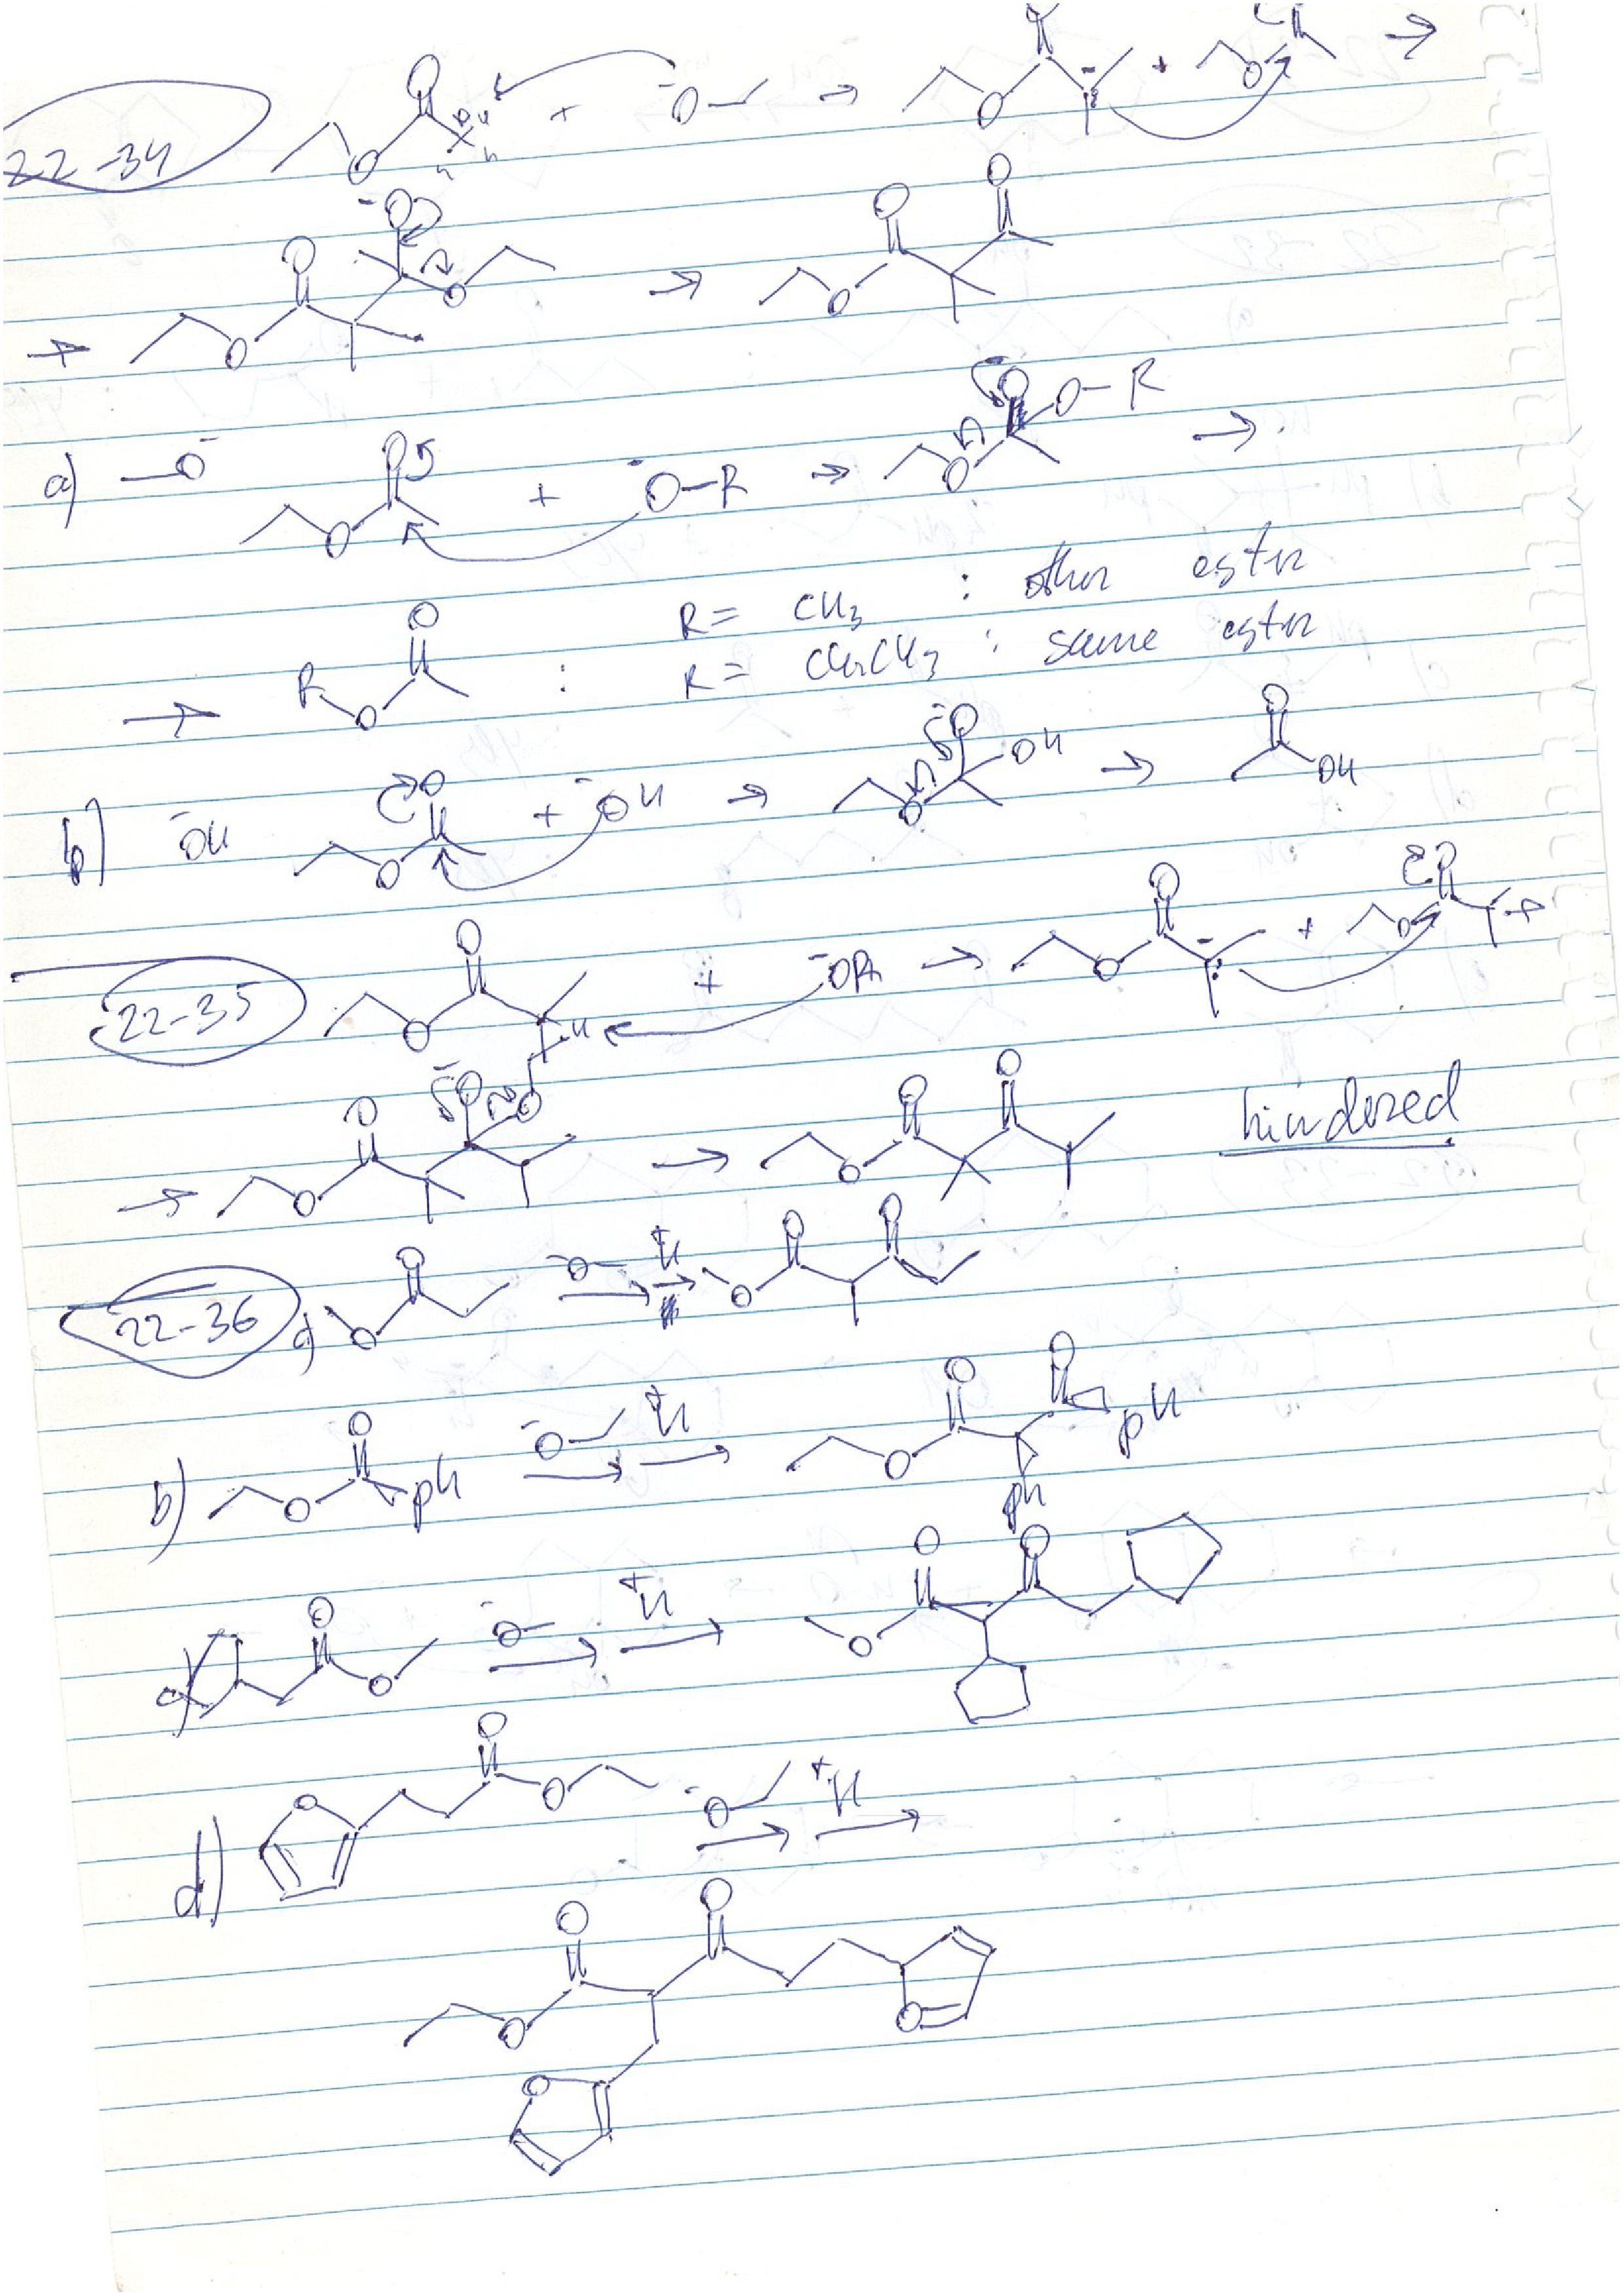 22-34
O
O
+
-O
O
O
+
O
-O
O
O
O
O
O
a) O-
O
O
+
-O-R
O
O
O-R
R= CH3 : other ester
R= CH2CH3 : same ester
R
O
O
:
b) -OH
O
O
+ -OH
-O
O
OH
O
OH
22-35
O
O
H
+
O
O
+
O
O
O
O
-O
O
O
O
O
hindered
22-36
a)
O
O
-O
+H
O
O
O
b)
O
O
ph
-O
+H
O
O
O
ph
ph
O
O
-O
+H
O
O
O
d)
O
O
O
-O
+H
O
O
O
O
O